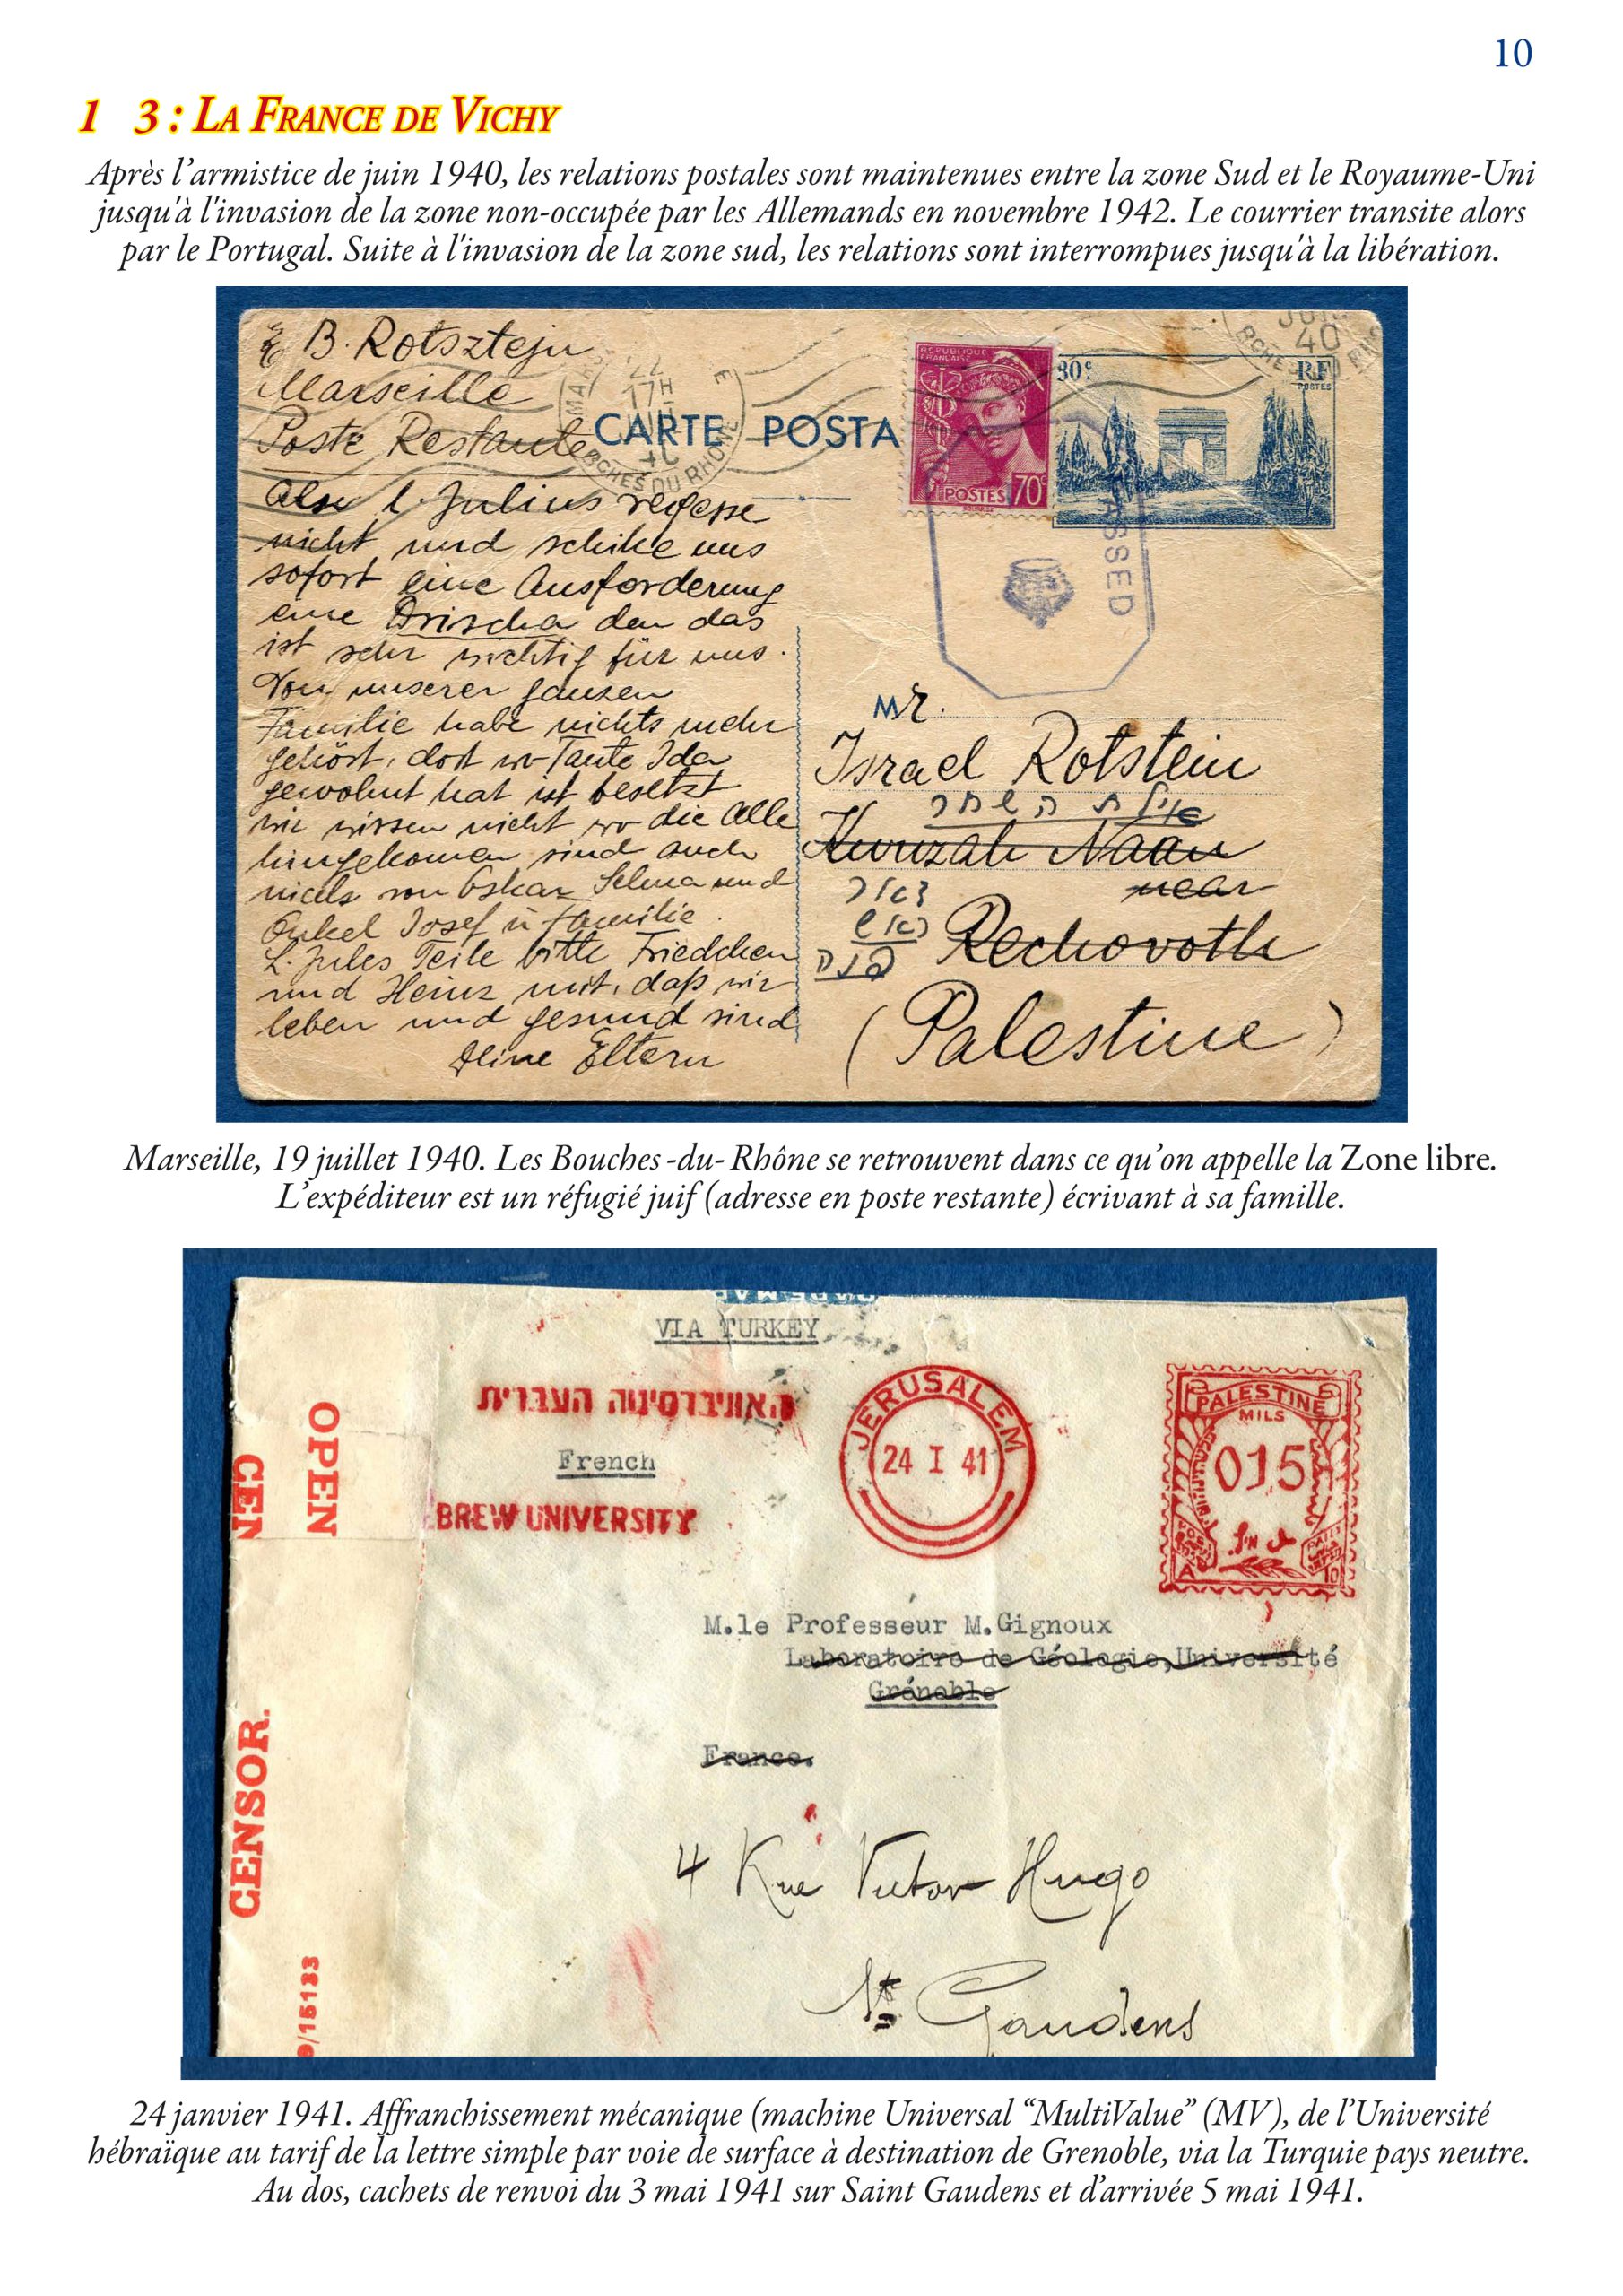 10
1 3 : La France de Vichy
Après l’armistice de juin 1940, les relations postales sont maintenues entre la zone Sud et le Royaume-Uni
jusqu'à l'invasion de la zone non-occupée par les Allemands en novembre 1942. Le courrier transite alors
par le Portugal. Suite à l'invasion de la zone sud, les relations sont interrompues jusqu'à la libération.
B. Rotsztejn
Marseille
Poste Restante
CARTE POSTA
REPUBLIQUE
FRANÇAISE
POSTES 70c
80c
RF
POSTES
40
22
17H
BCHES DU RHONE
ASSED
Also l. Julius vergesse
nicht und schike uns
sofort eine Ausforderung
eine Drischa den das
ist sehr wichtig für uns.
Von unserer ganzen
Familie habe nichts mehr
gehört, dort wo Tante Ida
gewohnt hat ist besetzt
wir wissen nicht wo die Alle
hingekomen sind auch
nichts von Oskar Selma und
Onkel Josef u familie.
L. Jules Teile bitte Friedchen
und Heinz mit, daß wir
leben und gesund sind
Deine Eltern
Mr.
Israel Rotstein
Kwuzah Naan
near
Rechovoth
(Palestine)
Marseille, 19 juillet 1940. Les Bouches -du- Rhône se retrouvent dans ce qu’on appelle la Zone libre.
L’expéditeur est un réfugié juif (adresse en poste restante) écrivant à sa famille.
VIA TURKEY
האוניברסיטה העברית
French
BREW UNIVERSITY
JERUSALEM
24 I 41
PALESTINE
MILS
015
OPEN
CEN
CENSOR.
9/15133
M.le Professeur M.Gignoux
Laboratoire de Géologie,Université
Grénoble
France.
4 Rue Victor Hugo
St Gaudens
24 janvier 1941. Affranchissement mécanique (machine Universal “MultiValue” (MV), de l’Université
hébraïque au tarif de la lettre simple par voie de surface à destination de Grenoble, via la Turquie pays neutre.
Au dos, cachets de renvoi du 3 mai 1941 sur Saint Gaudens et d’arrivée 5 mai 1941.